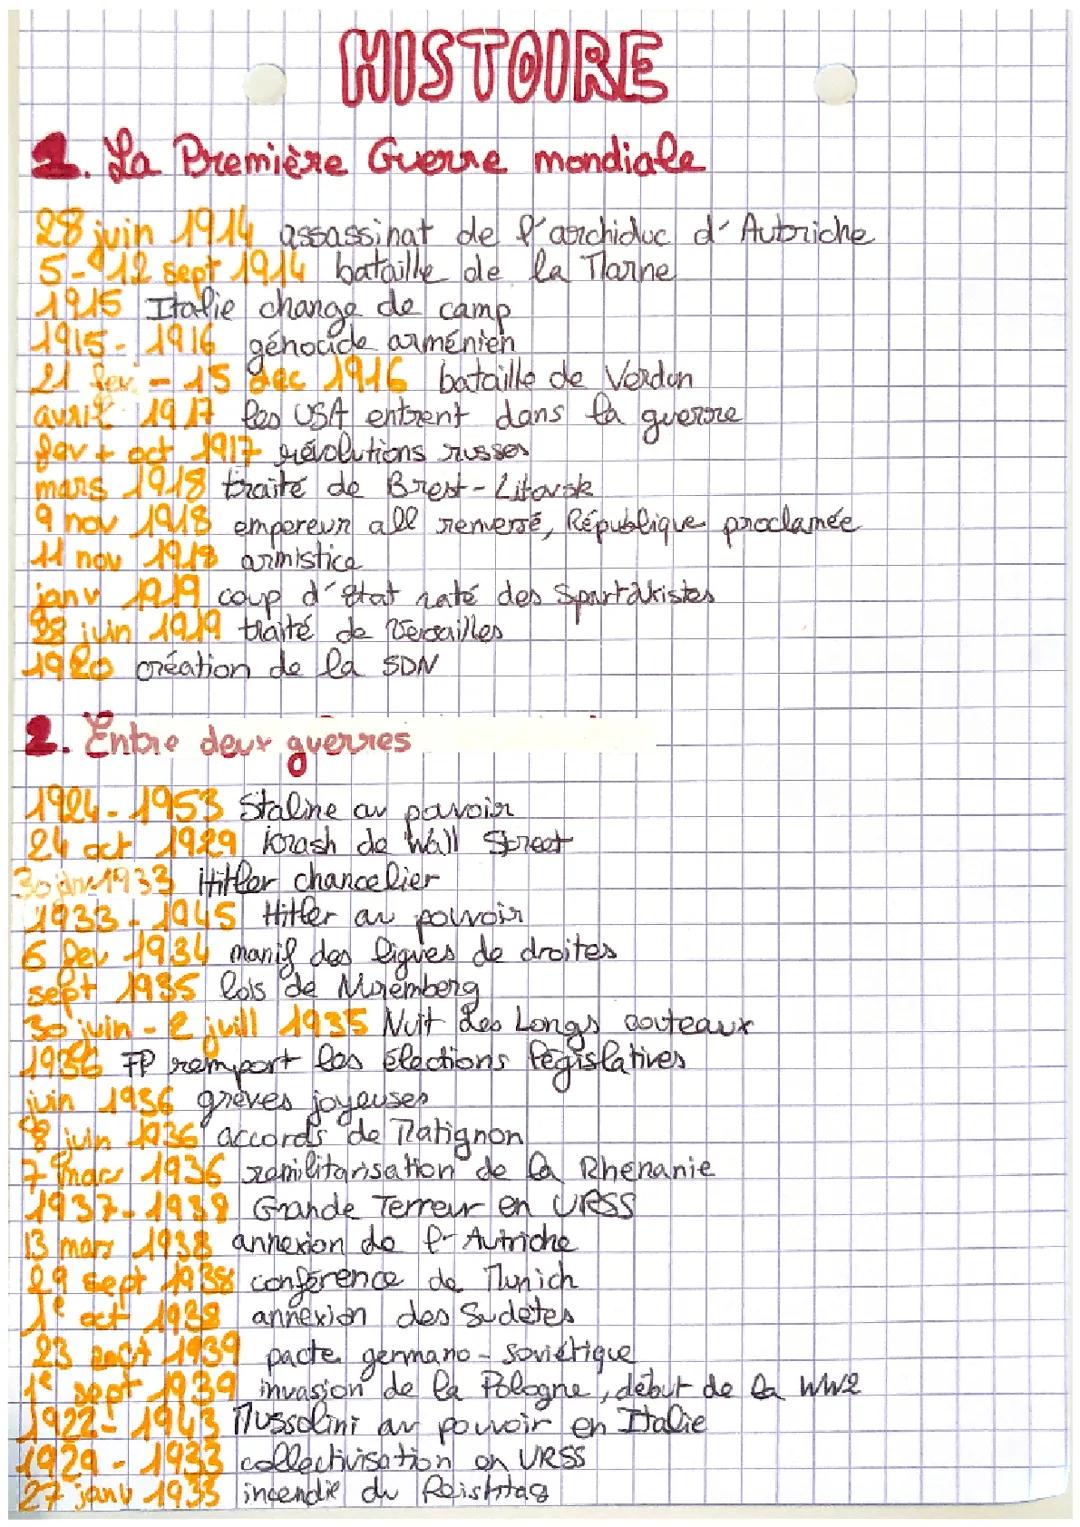 HISTOIRE
1. La Première Guerre mondiale
28 juin 1914 assassinat de l'archiduc d'Autriche
5-12 sept 1914 bataille de la Marne
1915 Italie change de camp
1915-1916 génocide arménien
21 fev - 15 dec 1916 bataille de Verdun
avril 1917 les USA entrent dans la guerre
fev + oct 1917 révolutions russes
mars 1918 traité de Brest-Litovsk
9 nov 1918 empereur all renversé, République proclamée
11 nov 1918 armistice
janv 1919 coup d'état raté des Spartakistes
28 juin 1919 traité de Versailles
1920 création de la SDN
2. Entre deux guerres
1924-1953 Staline au pouvoir
24 oct 1929 krash de Wall Street
30 janv 1933 Hitler chancelier
1933-1945 Hitler au pouvoir
6 fev 1934 manif des ligues de droites
sept 1935 lois de Nuremberg
30 juin - 2 juill 1935 Nuit des Longs couteaux
1936 FP remport les élections législatives
juin 1936 grèves joyeuses
8 juin 1936 accords de Matignon
7 mars 1936 remilitarisation de la Rhénanie
1937-1938 Grande Terreur en URSS
13 mars 1938 annexion de l'Autriche
29 sept 1938 conférence de Munich
1e oct 1938 annexion des Sudètes
23 août 1939 pacte germano-soviétique
1e sept 1939 invasion de la Pologne, début de la WW2
1922-1943 Mussolini au pouvoir en Italie
1929-1933 collectivisation en URSS
27 janv 1933 incendie du Reishtag